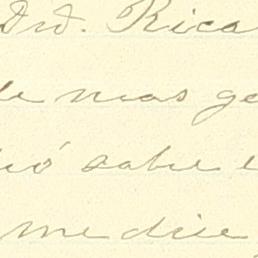 Dnd. Rica
le mas ge
ió sabe e
me dice